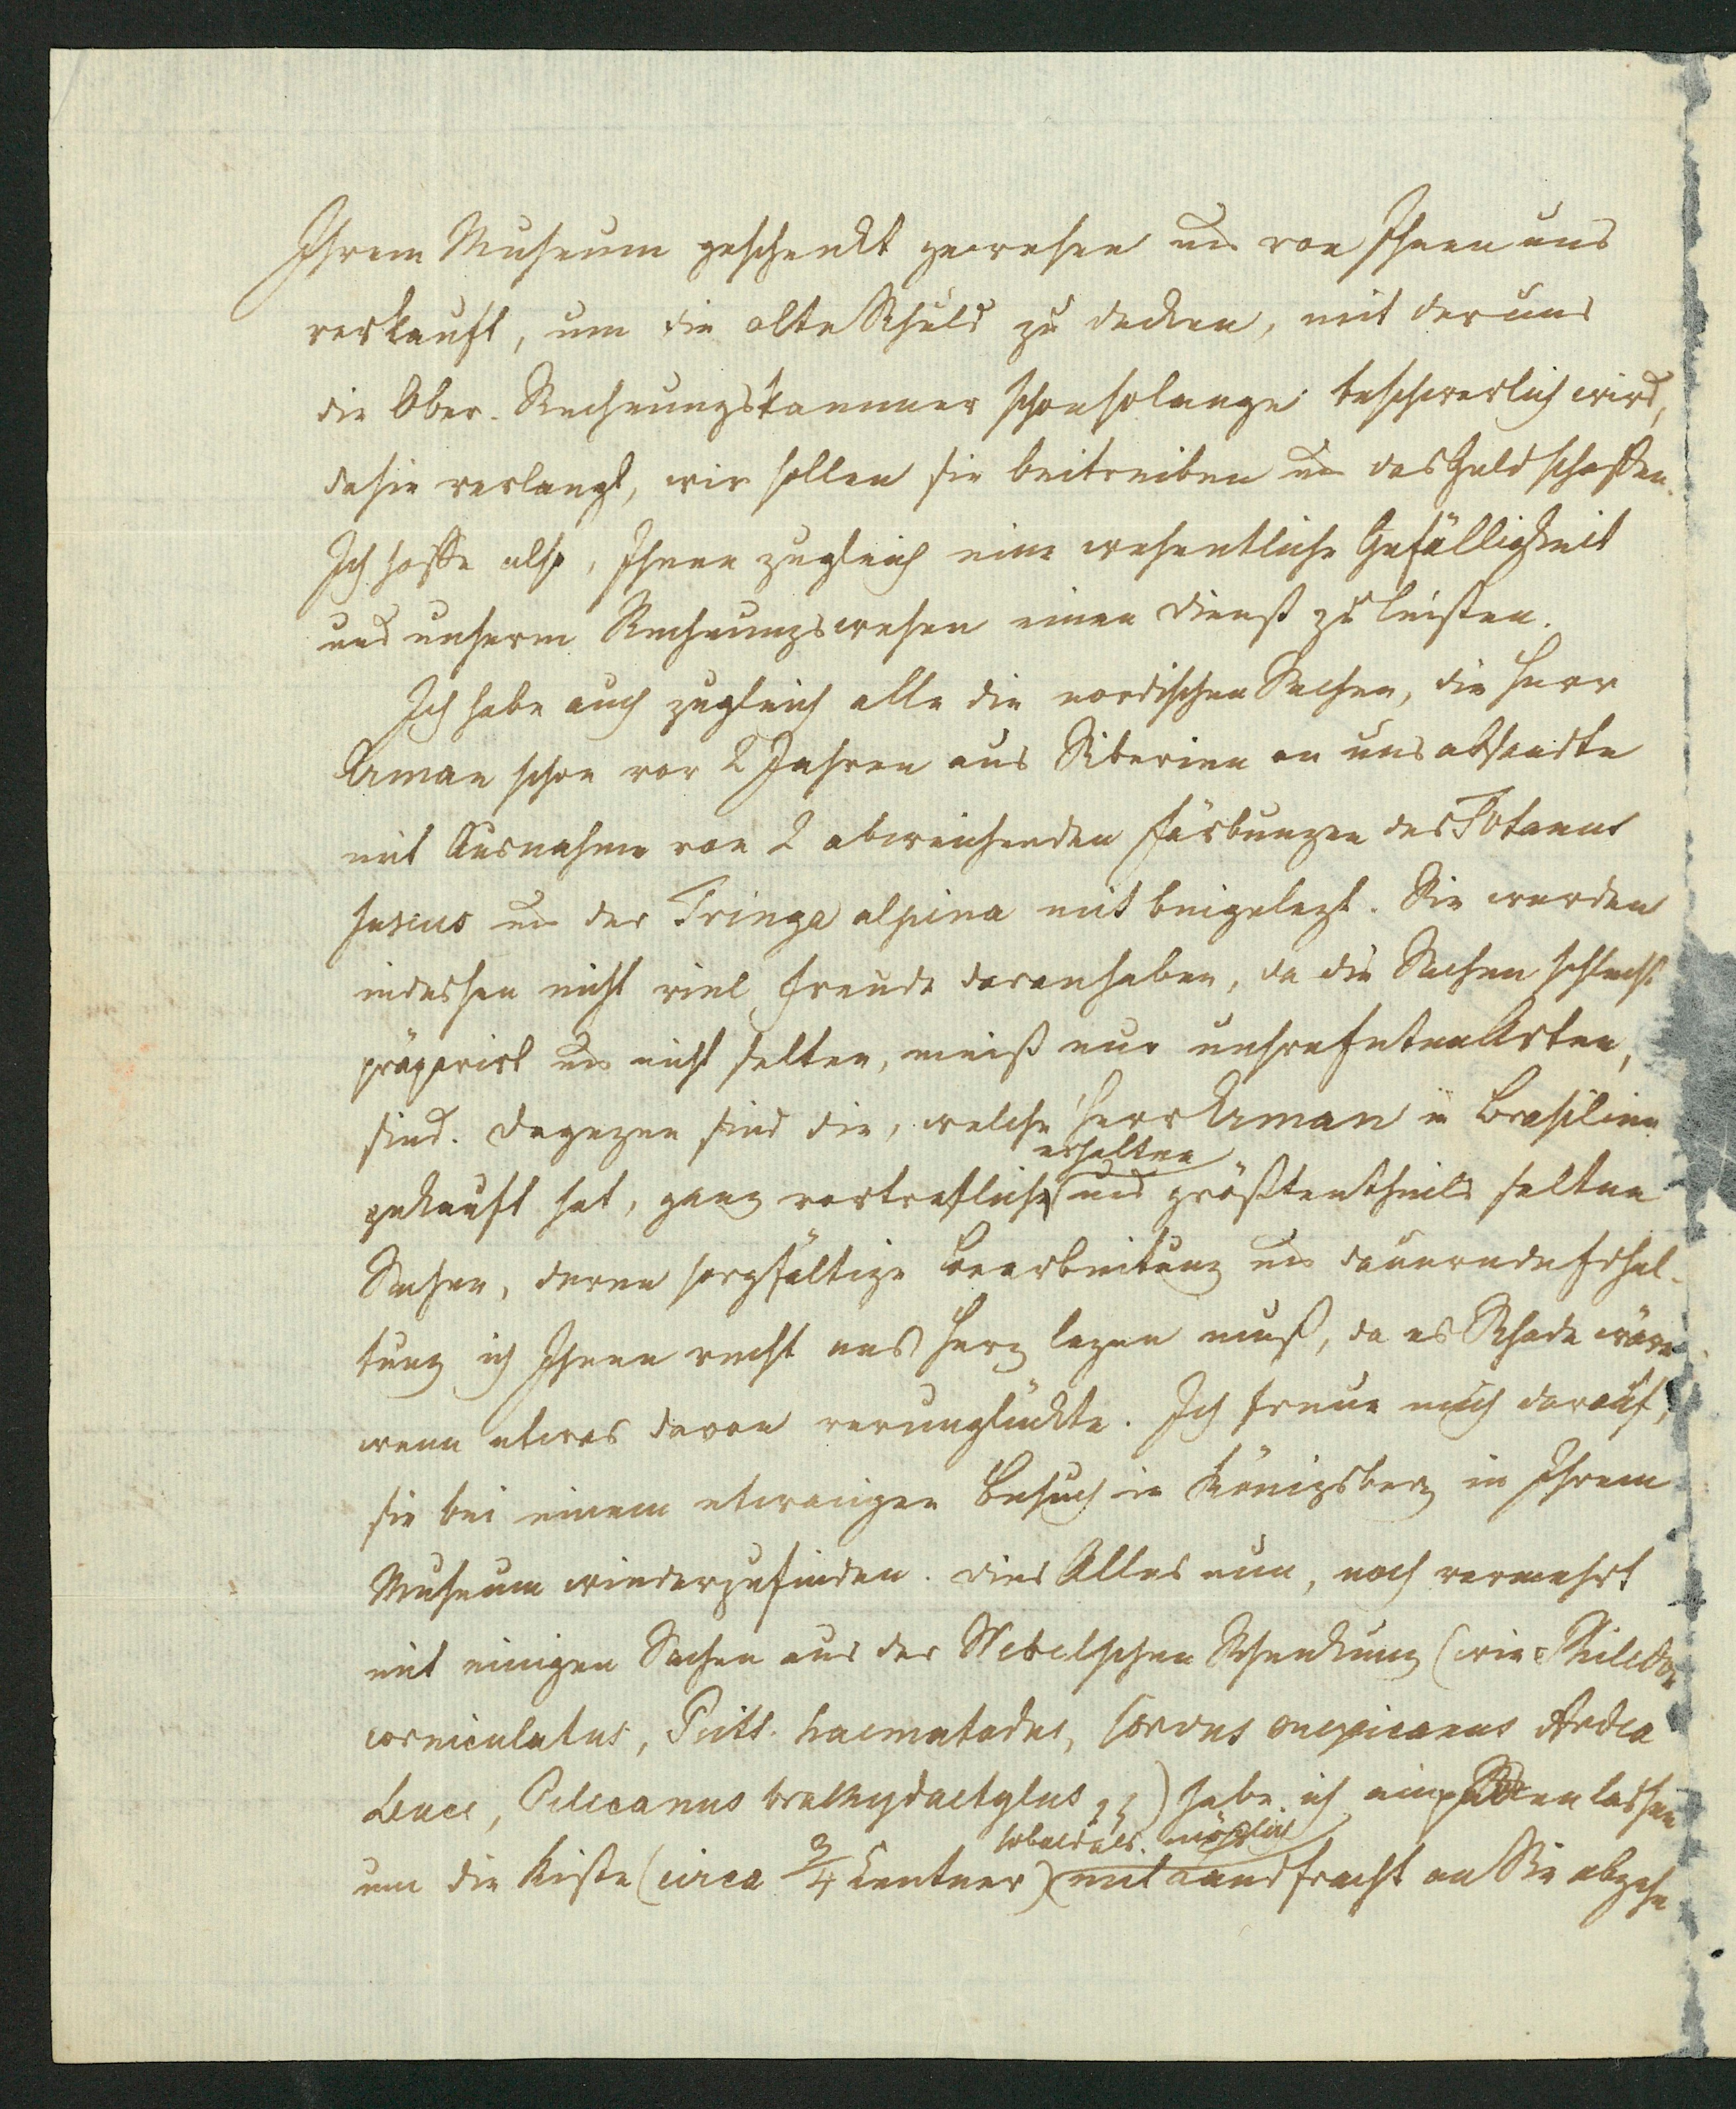 Ihrem Museum geschenkt gewesen und von Ihnen uns
verkauft, um die alte Schuld zu decken, mit der uns
die Ober-Rechnungskammer schon so lange beschwerlich wird,
da sie verlangt, wir sollen sie beitreiben und das Geld schaffen.
Ich hoffe also, Ihnen zugleich eine wesentliche Gefälligkeit
und unserm Rechnungswesen einen Dienst zu leisten.
Ich habe auch zugleich alle die nordischen Sachen, die Herr
Erman schon vor 2 Jahren aus Siberien an uns absandte
mit Ausnahme von 2 abweichenden Färbungen des Totanus
fuscus und der Tringa alpina mit beigelegt. Sie werden
indessen nicht viel Freude daran haben, da die Sachen schlecht
präparirt und nicht selten, meist nur Arten,
sind. Dagegen sind die, welche Herr Erman in Brasilien
erhalten
gekauft hat, ganz vortreflich und größtentheils seltne
Sachen, deren sorgfältige Bearbeitung und dauernde Erhal-
tung ich Ihnen recht ans Herz legen muß, da es Schade wäre
wenn etwas davon verunglückte. Ich freue mich darauf,
sie bei einem etwanigen Besuch in Königsberg in Ihrem
Museum wiederzufinden. Dies Alles nun, noch vermehrt
mit einigen Sachen aus der Schenkung (wie Philedon
corniculatus, Psitt. haematodus, Corvus mexicanus Ardea
Leuce, Pelecanus brachydactylus) habe ich einpacken lassen
sobald als möglich
um die Kiste (circa 3/4 Centner) mit Landfracht an Sie abgehn